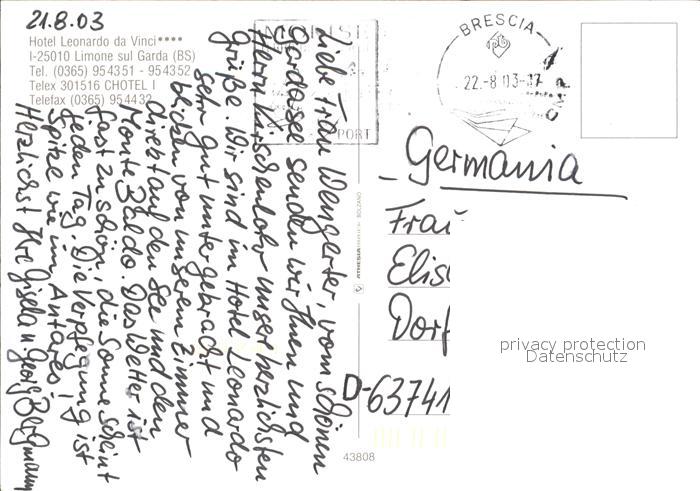 21.8.03
Hotel Leonardo da Vinci ****
I-25010 Limone sul Garda (BS)
Tel. (0365) 954351 - 954352
Telex 301516 CHOTEL I
Telefax (0365) 954432
Liebe Frau Wengerter, vom schönen
Gardasee senden wir Ihnen und
Herrn Hirschenlohr unsere herzlichsten
Grüße. Wir sind im Hotel Leonardo
sehr gut untergebracht und
blicken von unserem Zimmer
direkt auf den See und den
Monte Baldo. Das Wetter ist
fast zu schön, die Sonne scheint
jeden Tag. Die Verpflegung ist
Spitze wie im Antares!
Herzlichst Ihre Gisela u Georg Bergmann
PORT
BRESCIA
22.-8 03-17
ATHESIA BOLZANO
Germania
Frau
Elis
Dorf
D-63741
privacy protection
Datenschutz
43808